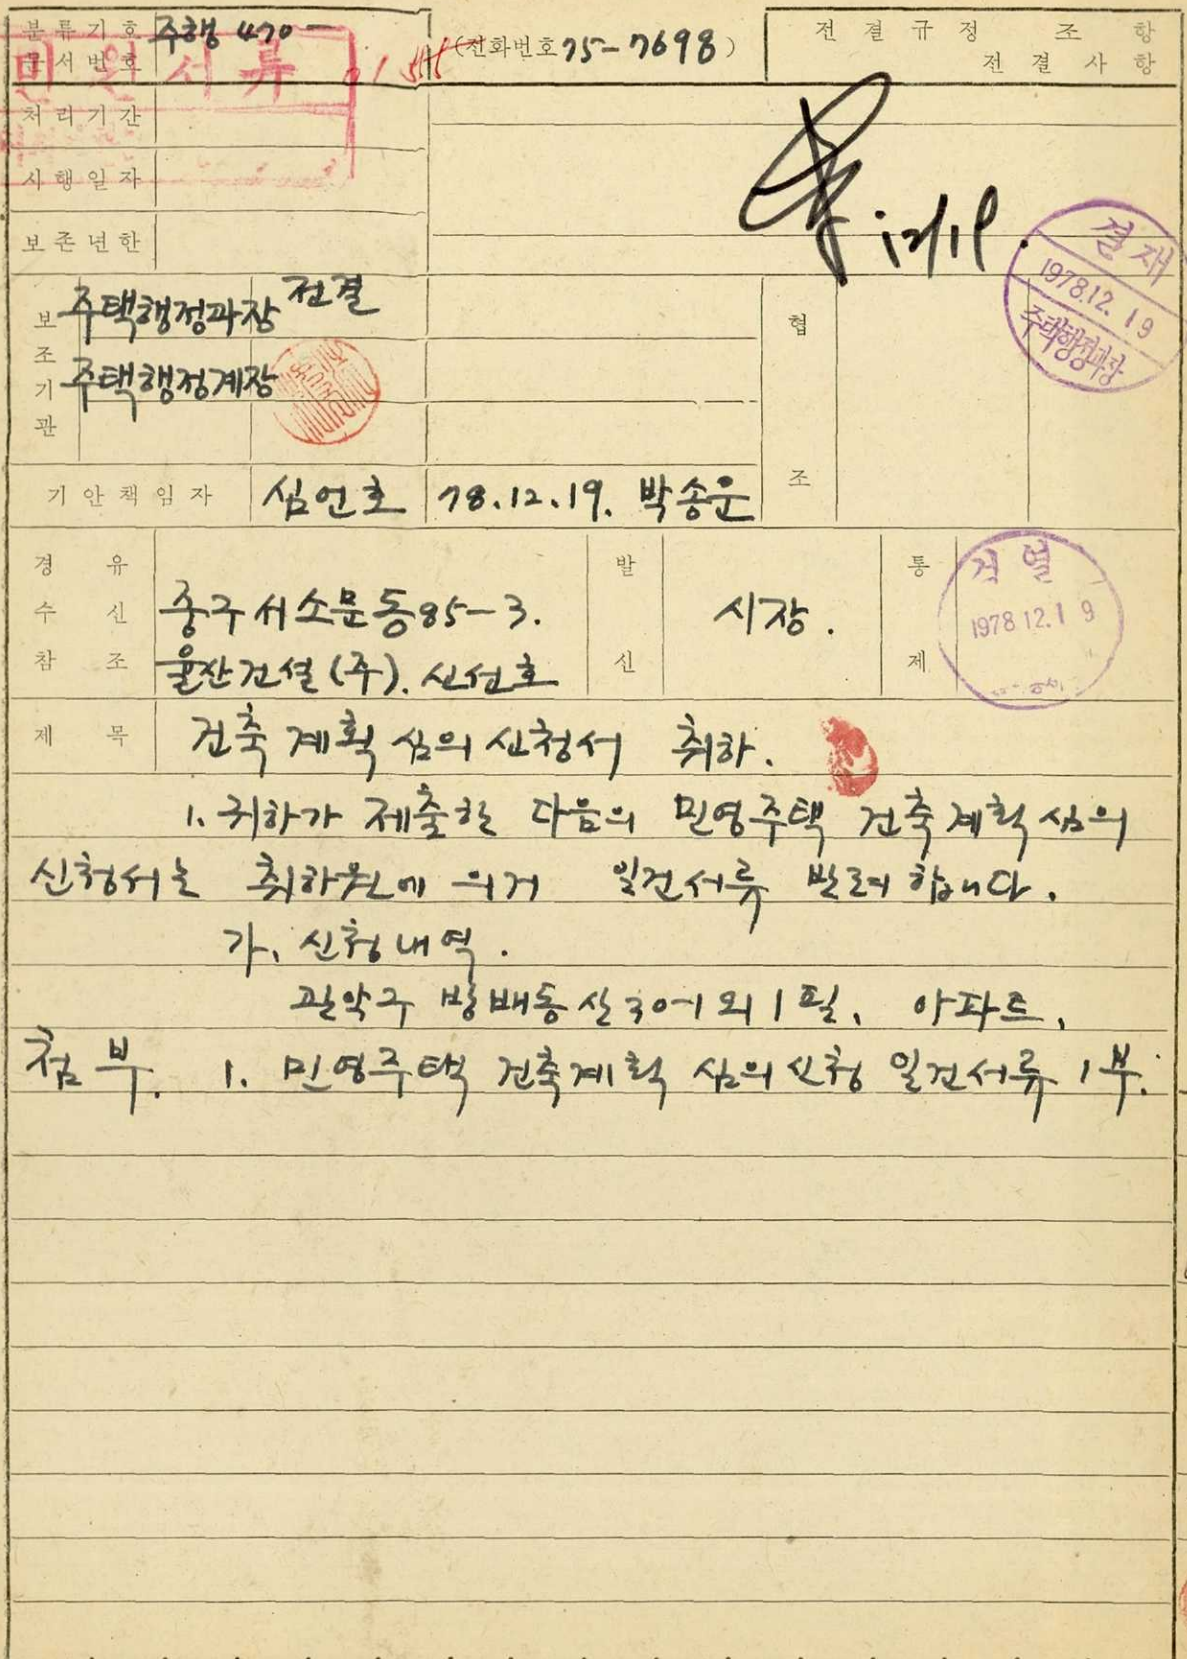 분류기호 주행 470-
문서번호
(전화번호 75-7698)
전결규정 조 항
전결사항
민원서류
처리기간
시행일자
12/19.
보존년한
결재
1978.12.19
주택행정과장
보조기관
주택행정과장 전결
주택행정계장
협조
기안책임자 심언호 78.12.19. 박송운
경유
수신 중구 서소문동 85-3.
참조 율산건설(주). 신선호
발신 시장.
통제
검열
1978.12.19
제목 건축계획심의신청서 취하.
1. 귀하가 제출한 다음의 민영주택 건축계획심의
신청서는 취하원에 의거 일건서류 반려합니다.
가. 신청내역.
관악구 방배동 산 30-1 외 1필. 아파트.
첨부. 1. 민영주택 건축계획 심의신청 일건서류 1부.